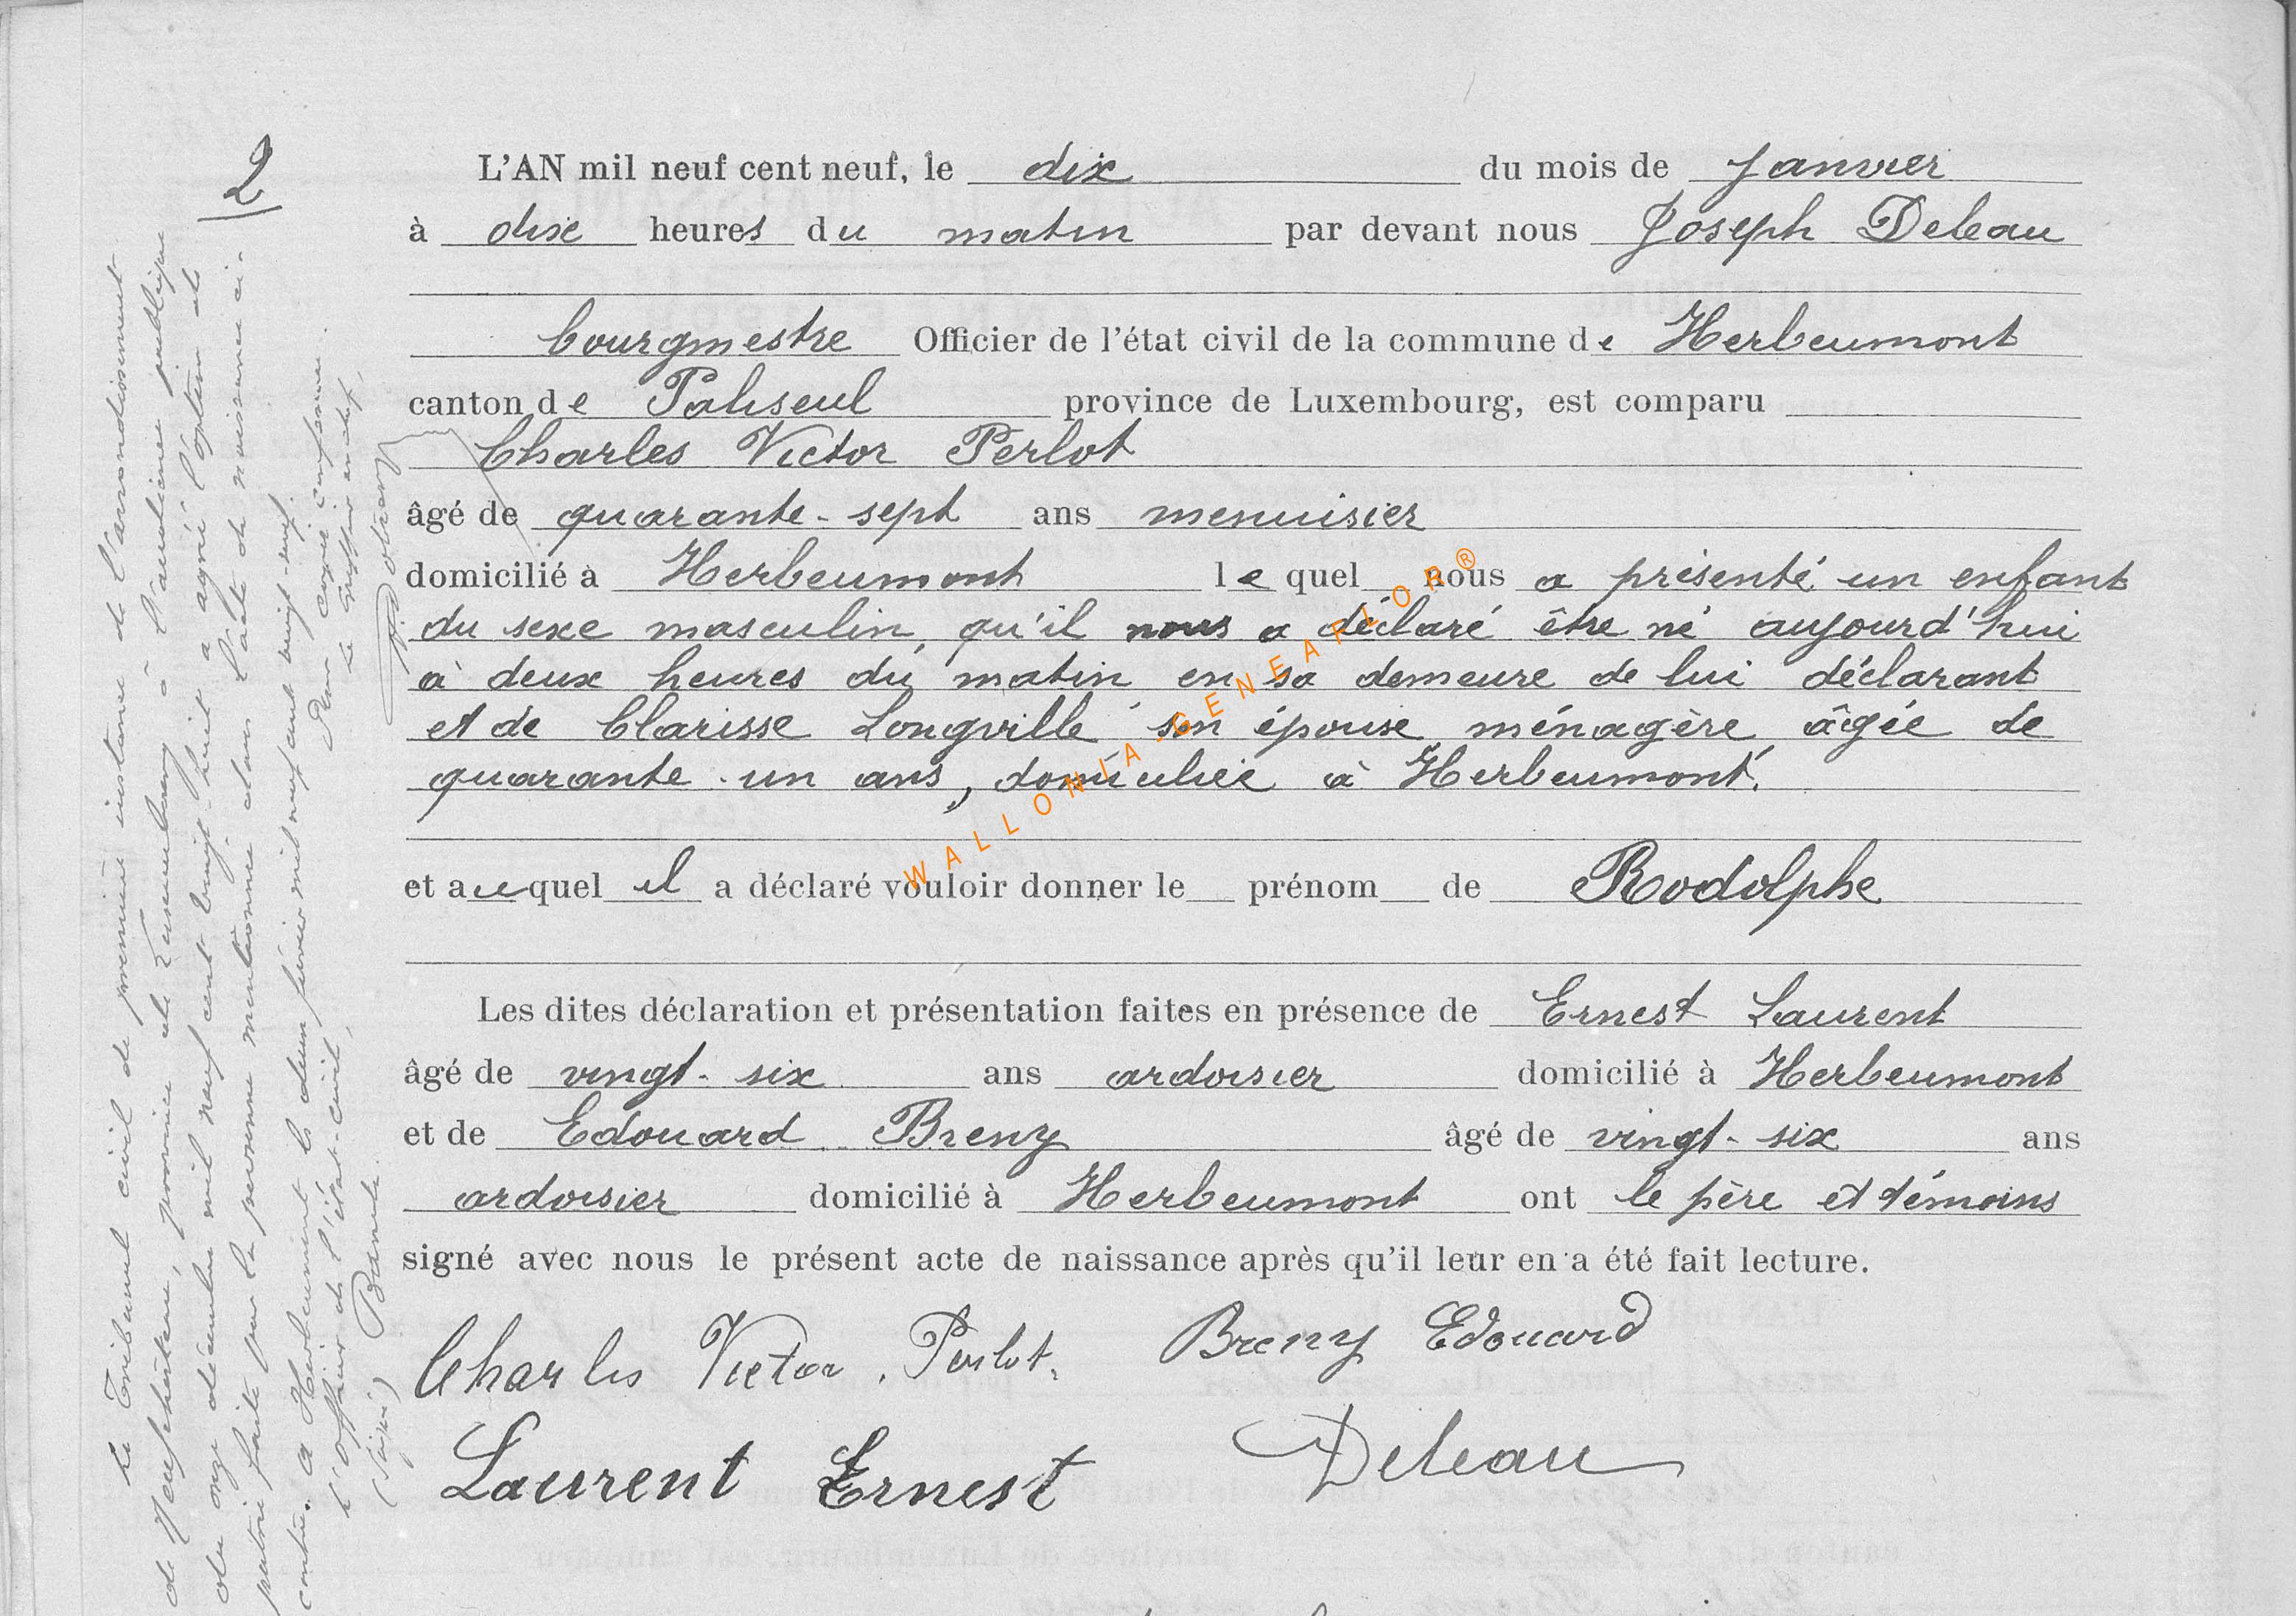 2
L'AN mil neuf cent neuf, le dix du mois de Janvier
à dix heures du matin par devant nous Joseph Deleau
bourgmestre Officier de l'état civil de la commune de Herbeumont
canton de Paliseul province de Luxembourg, est comparu
Charles Victor Perlot
âgé de quarante-sept ans menuisier
domicilié à Herbeumont lequel nous a présenté un enfant
du sexe masculin, qu'il nous a déclaré être né aujourd'hui
à deux heures du matin en sa demeure de lui déclarant
et de Clarisse Longville son épouse ménagère âgée de
quarante-un ans, domiciliée à Herbeumont.
et auquel il a déclaré vouloir donner le prénom de Rodolphe
Les dites déclaration et présentation faites en présence de Ernest Laurent
âgé de vingt-six ans ardoisier domicilié à Herbeumont
et de Edouard Breny âgé de vingt-six ans
ardoisier domicilié à Herbeumont ont le père et témoins
signé avec nous le présent acte de naissance après qu'il leur en a été fait lecture.
Charles Victor Perlot. Breny Edouard
Laurent Ernest Deleau
Le Tribunal civil de première instance de l'arrondissement
de Neufchâteau, province de Luxembourg à l'audience publique
du onze décembre mil neuf cent vingt-huit a agréé l'option de
patrie faite par la personne mentionnée dans l'acte de naissance ci-
contre. A Herbeumont le deux février mil neuf cent vingt-neuf.
L'officier de l'état-civil, Pour copie conforme
(Signé) le Greffier en chef,
WALLONIA-GENEAFLOR®